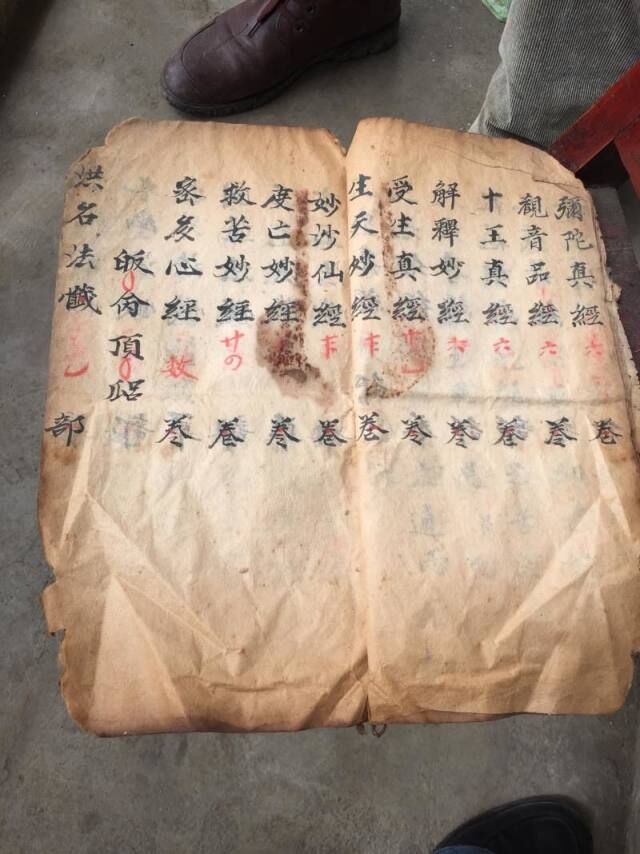 彌陀真經 卷
觀音品經 六 卷
十王真經 六 卷
解釋妙經 卷
受生真經 卷
生天妙經 卷
妙沙仙經 卷
度亡妙經 卷
救苦妙經 廿の 卷
密多心經 数 卷
皈命頂禮
洪名法懺 部